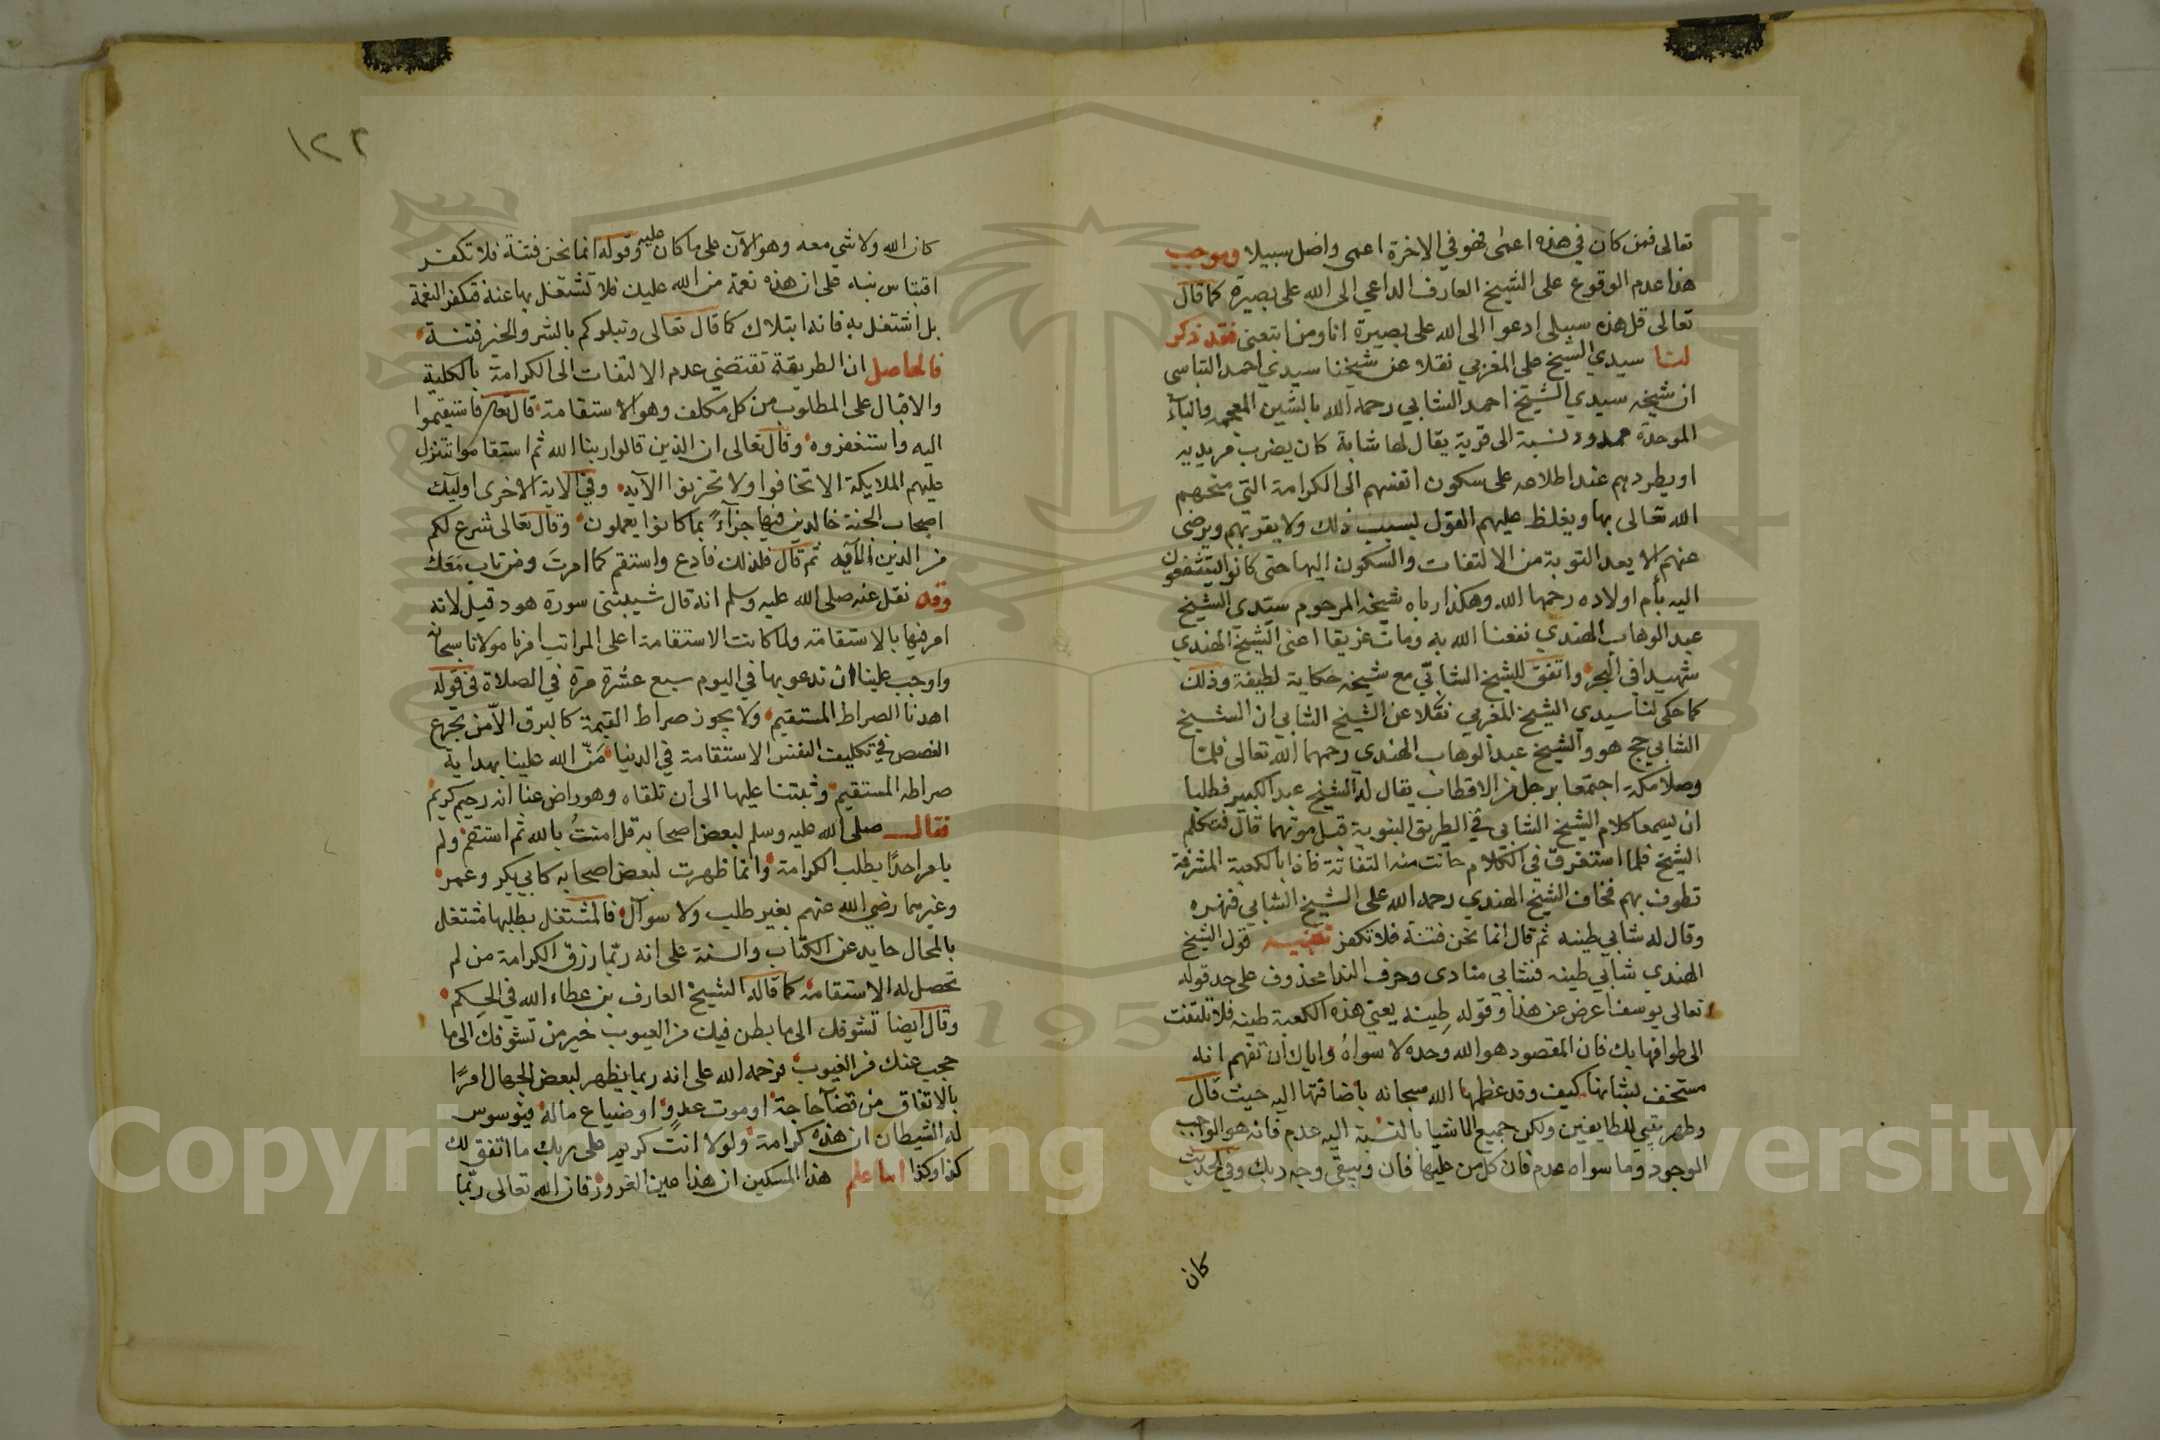 تعالى فمن كان في هذه اعمى فهو في الاخرة اعمى واضل سبيلا وموجب
هذا عدم الوقوع على الشيخ العارف الداعي الى الله على بصيرة كما قال
تعالى قل هذه سبيلي ادعوا الى الله على بصيرة انا ومن اتبعني فقد ذكر
لنا سيدي الشيخ علي المغربي نقلا عن شيخنا سيدي احمد التباسي
ان شيخه سيدي الشيخ احمد الشابي رحمه الله بالشين المعجمه والباء
الموحدة ممدود نسبة الى قرية يقال لها شابة كان يضرب مريديه
او يطردهم عند اطلاعه على سكون انفسهم الى الكرامة التي منحهم
الله تعالى بها ويغلظ عليهم القول بسبب ذلك ولا يقربهم ويرضى
عنهم الا بعد التوبة من الالتفات والسكون اليها حتى كانوا يتشفعون
اليه بأم اولاده رحمها الله وهكذا رباه شيخه المرحوم سيدي الشيخ
عبد الوهاب الهندي نفعنا الله به ومات غريقا اعني الشيخ الهندي
شهيدا في البحر واتفق للشيخ الشابي مع شيخه حكاية لطيفة وذلك
كما حكى لنا سيدي الشيخ المغربي نقلا عن الشيخ الشابي ان الشيخ
الشابي حج هو والشيخ عبد الوهاب الهندي رحمهما الله تعالى فلما
وصلا مكة اجتمعا برجل من الاقطاب يقال له الشيخ عبد الكبير فطلبا
ان يسمعا كلام الشيخ الشابي في الطريق النبوية قبل موتهما قال فتكلم
الشيخ فلما استغرق في الكلام حانت منه التفاتة فاذا بالكعبة المشرفة
تطوف بهم فخاف الشيخ الهندي رحمه الله على الشيخ الشابي فنهره
وقال له شابي طينه ثم قال انما نحن فتنة فلا تكفر تنبيه قول الشيخ
الهندي شابي طينه فشابي منادى وحرف الندا محذوف على حد قوله
تعالى يوسف اعرض عن هذا وقوله طينه يعني هذه الكعبة طينه فلا تلتفت
الى طوافها بك فان المقصود هو الله وحده لا سواه واياك ان تفهم انه
مستخف بشانها كيف وقد عظمها الله سبحانه باضافتها اليه حيث قال
وطهر بيتي للطايفين ولكن جميع الاشيا بالنسبة اليه عدم فانه هو الواجب
الوجود وما سواه عدم فان كل من عليها فان ويبقى وجه ربك وفي الحديث
كان
١٢٣
كان الله ولا شي معه وهو الان على ما كان عليه وقوله انما نحن فتنة فلا تكفر
اقتباس نبه على ان هذه نعمة من الله عليك فلا تشتغل بها عنه فتكفر النعمة
بل اشتغل به فانه ابتلاك كما قال تعالى ونبلوكم بالشر والخير فتنة
فالحاصل ان الطريقة تقتضي عدم الالتفات الى الكرامة بالكلية
والاقبال على المطلوب من كل مكلف وهو الاستقامة قال تعالى فاستقيموا
اليه واستغفروه وقال تعالى ان الذين قالوا ربنا الله ثم استقاموا تتنزل
عليهم الملايكة الا تخافوا ولا تحزنوا الآيه وفي الاية الاخرى اوليك
اصحاب الجنة خالدين فيها جزآء بما كانوا يعملون وقال تعالى شرع لكم
من الدين الآيه ثم قال فلذلك فادع واستقم كما امرت ومن تاب معك
وقد نقل عنه صلى الله عليه وسلم انه قال شيبتني سورة هود قيل لانه
امر فيها بالاستقامة ولما كانت الاستقامة اعلى المراتب امرنا مولانا سبحانه
واوجب علينا ان ندعو بها في اليوم سبع عشرة مرة في الصلاة في قوله
اهدنا الصراط المستقيم ولا يجوز صراط القيمة كالبرق الا من تجرع
الغصص في تكليف النفس الاستقامة في الدنيا مَنّ الله علينا بهداية
صراطه المستقيم وثبتنا عليها الى ان نلقاه وهو راض عنا انه رحيم كريم
فقال صلى الله عليه وسلم لبعض اصحابه قل امنتُ بالله ثم استقم ولم
يامر احدًا بطلب الكرامة وانما ظهرت لبعض اصحابه كابي بكر وعمر
وغيرهما رضي الله عنهم بغير طلب ولا سوآل فالمشتغل بطلبها مشتغل
بالمحال حايد عن الكتاب والسنة على انه ربّما رزق الكرامة من لم
تحصل له الاستقامة كما قاله الشيخ العارف بن عطاء الله في الحكم
وقال ايضا تشوفك الى ما بطن فيك من العيوب خير من تشوفك الى ما
حجب عنك من الغيوب فرحمه الله على انه ربما يظهر لبعض الجهال امرًا
بالاتفاق من قضآ حاجة او موت عدو او ضياع ماله فيوسوس
له الشيطان ان هذه كرامة ولولا انت كريم على ربك ما اتفق لك
كذا وكذا اما علم هذا المسكين ان هذا عين الغرور فان الله تعالى ربّما
Copyright © King Saud University